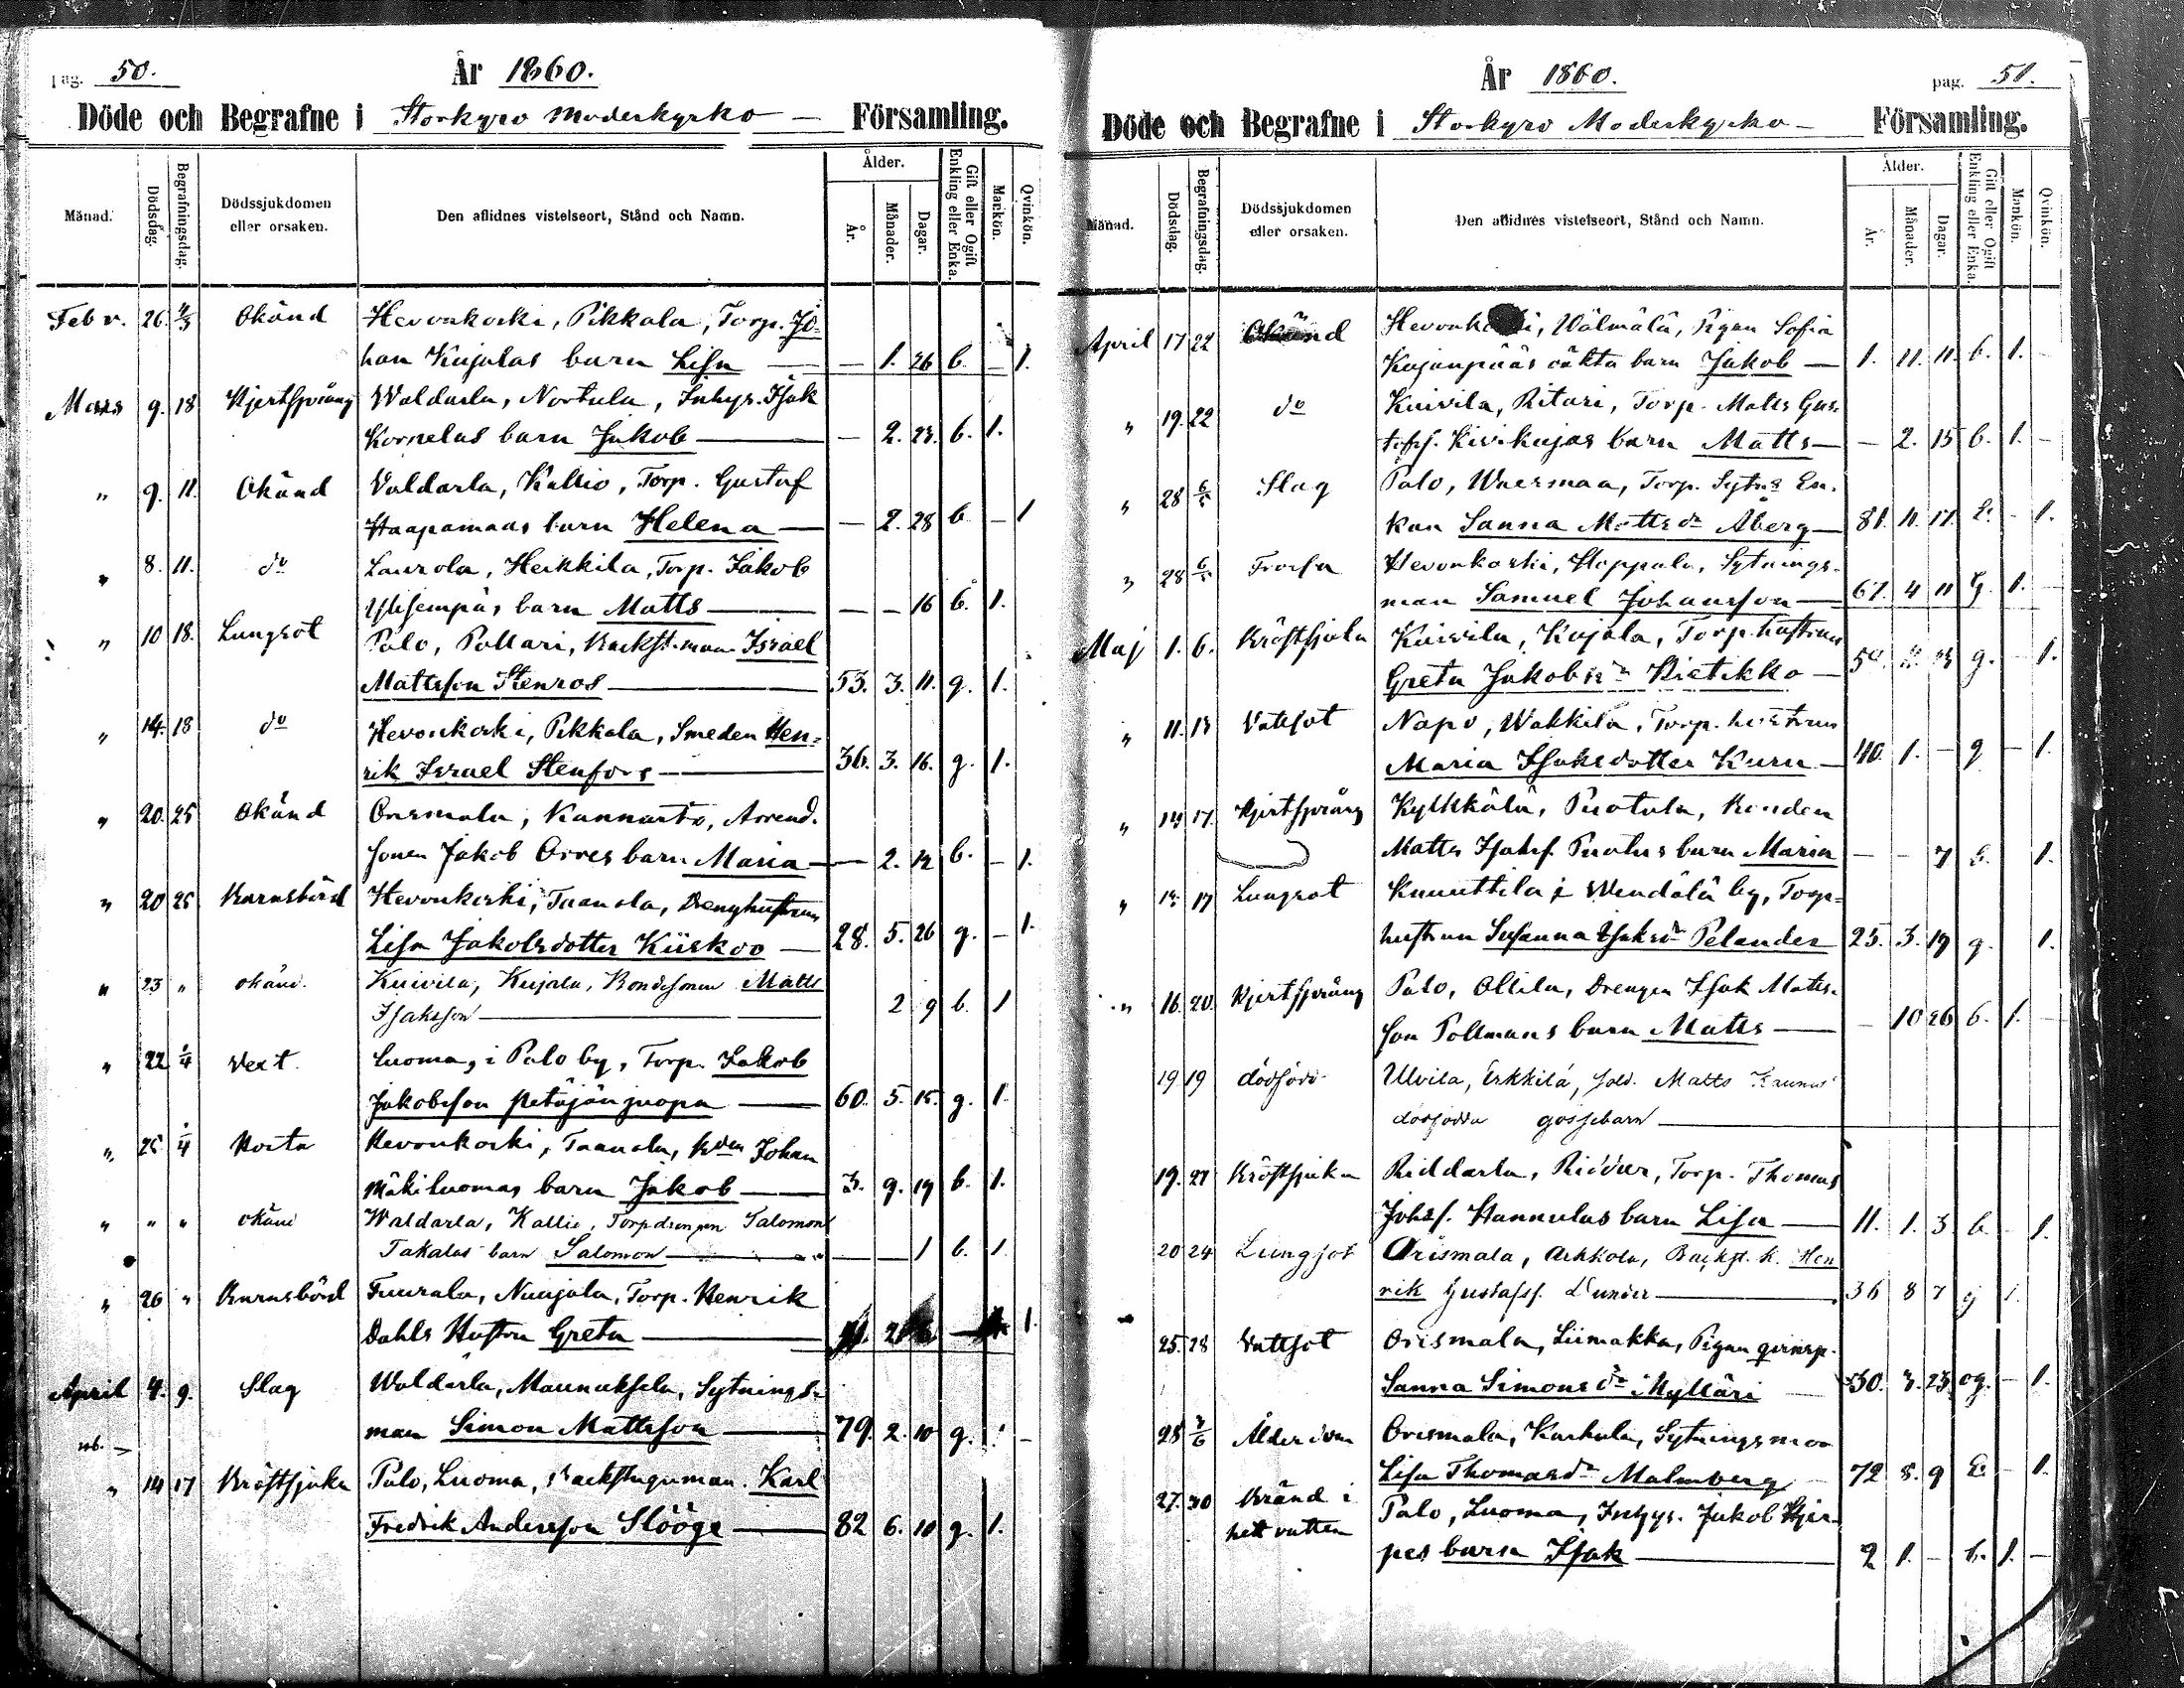 pag. 50.
År 1860.
Döde och Begrafne i Storkyro Moderkyrko Församling.
Månad.
Dödsdag.
Begrafningsdag.
Dödssjukdomen eller orsaken.
Den aflidnes vistelseort, Stånd och Namn.
Ålder.
År.
Månader.
Dagar.
Gift eller Ogift Enkling eller Enka.
Mankön.
Qvinkön.
Febr. 26. 4/3 Okänd Hevonkoski, Pikkala, Torp. Jo-
han Kujalas barn Lisa — 1. 26 b. — 1.
Mars 9. 18 Hjertsprång Waldarla, Nortula, Inhys. Isak
Kornelas barn Jakob — 2. 23. b. 1.
" 9. 11. Okänd Valdarla, Kallio, Torp. Gustaf
Haapamaas barn Helena — 2. 28 b — 1
" 8. 11. do Laurola, Heikkila, Torp. Jakob
Ylisempäs barn Matts — — 16 b. 1.
" 10 18. Lungsot Palo, Pollari, Backst.man Israel
Mattsson Stenros 53. 3. 11. g. 1.
" 14. 18 do Hevonkoski, Pikkala, Smeden Hen-
rik Israel Stenfors 36. 3. 16. g. 1.
" 20. 25 Okänd Orismala, Kannasto, Arrend.
sonen Jakob Orres barn Maria — 2. 12 b. — 1.
" 20 25 Barnsbörd Hevonkoski, Taanola, Drenghustrun
Lisa Jakobsdotter Kiiskoo 28. 5. 26 g. — 1.
" 23 " okänd. Kuivila, Kujala, Bondesonen Matts
Isaksson 2 9 b. 1
" 22 1/4 Vext. Luoma, i Palo by, Torp. Jakob
Jakobsson Petäjänjuopa 60. 5. 15. g. 1.
" 25 1/4 Hosta Hevonkoski, Taanola, Bden Johan
Mäkiluomas barn Jakob 3. 9. 19 b. 1.
" " " okänd Waldarla, Kallio, Torpdrengen Salomon
Takalas barn Salomon — 1 b. 1
" 26 " Barnsbörd Tuurala, Nuujala, Torp. Henrik
Dahls Hustru Greta 1.
April 4. 9. Slag Waldarla, Maunuksela, Sytnings-
man Simon Mattsson 79. 2. 10 g. 1. —
nb. —
" 14 17 Bröstsjuka Palo, Luoma, Backstuguman Karl
Fredrik Andersson Slööge 82 6. 10 g. 1.
År 1860.
pag. 51.
Döde och Begrafne i Storkyro Moderkyrko Församling.
Månad.
Dödsdag.
Begrafningsdag.
Dödssjukdomen eller orsaken.
Den aflidnes vistelseort, Stånd och Namn.
Ålder.
År.
Månader.
Dagar.
Gift eller Ogift Enkling eller Enka.
Mankön.
Qvinkön.
April 17 22 Okänd Välmälä, Pigan Sofia
Kujanpääs oäkta barn Jakob — 1. 11. 11. b. 1. —
" 19. 22 do Kuivila, Ritari, Torp. Matts Gus-
tafss. Kivikujas barn Matts — 2. 15 b. 1. —
" 28 6/5 Slag Palo, Waismaa, Torp. Sytns En-
kan Sanna Mattsdr Åberg 81. 11. 17. E. — 1.
" 28 6/5 Frossa Hevonkoski, Hoppala, Sytnings-
man Samuel Johansson 67. 4 11 g. 1.
Maj 1. 6. Bröstsjuka Kuivila, Kujala, Torp.hustrun
Greta Jakobsdr Kietikko g. — 1.
" 11. 13 Vattsot Napo, Wakkila, Torp. hustrun
Maria Isaksdotter Kuru 40. 1. — g — 1.
" 17. Hjertsprång Kylkkälä, Puotula, Bonden
Matts Isakss. Puotus barn Maria — — 7 b. 1.
" 17 Lungsot Knuuttila i Wendälä by, Torp-
hustrun Susanna Isaksdr Pelander 25. 3. 19 g. 1.
" 16. 20. Hjertsprång Palo, Ollila, Drengen Isak Matts-
son Pollmans barn Matts — 10 26 b. 1. —
19 19 dödfödd Ulvila, Erkkilä, Sold. Matts Kaunus
dödfödda gossebarn
19. 27 Bröstsjuka Riddarla, Ridder, Torp. Thomas
Johss. Hannulas barn Lisa 11. 1. 3 b — 1.
20 24 Lungsot Orismala, Ackkola, Backst. k. Hen
rik Gustafss. Dunder 36 8 7 g 1.
25. 28 Vattsot Orismala, Liimakka, Pigan qvinsp.
Sanna Simonsdr Mylläri 50. 3. 23 og. — 1.
28 3/6 Ålderdom Orismala, Karhula, Sytningsmor
Lisa Thomasdr Malmberg 72 8. 9 E. — 1.
27. 30 Bränd i hett vatten Palo, Luoma, Inhys. Jakob
pes barn Isak 2 1. — b. 1. —